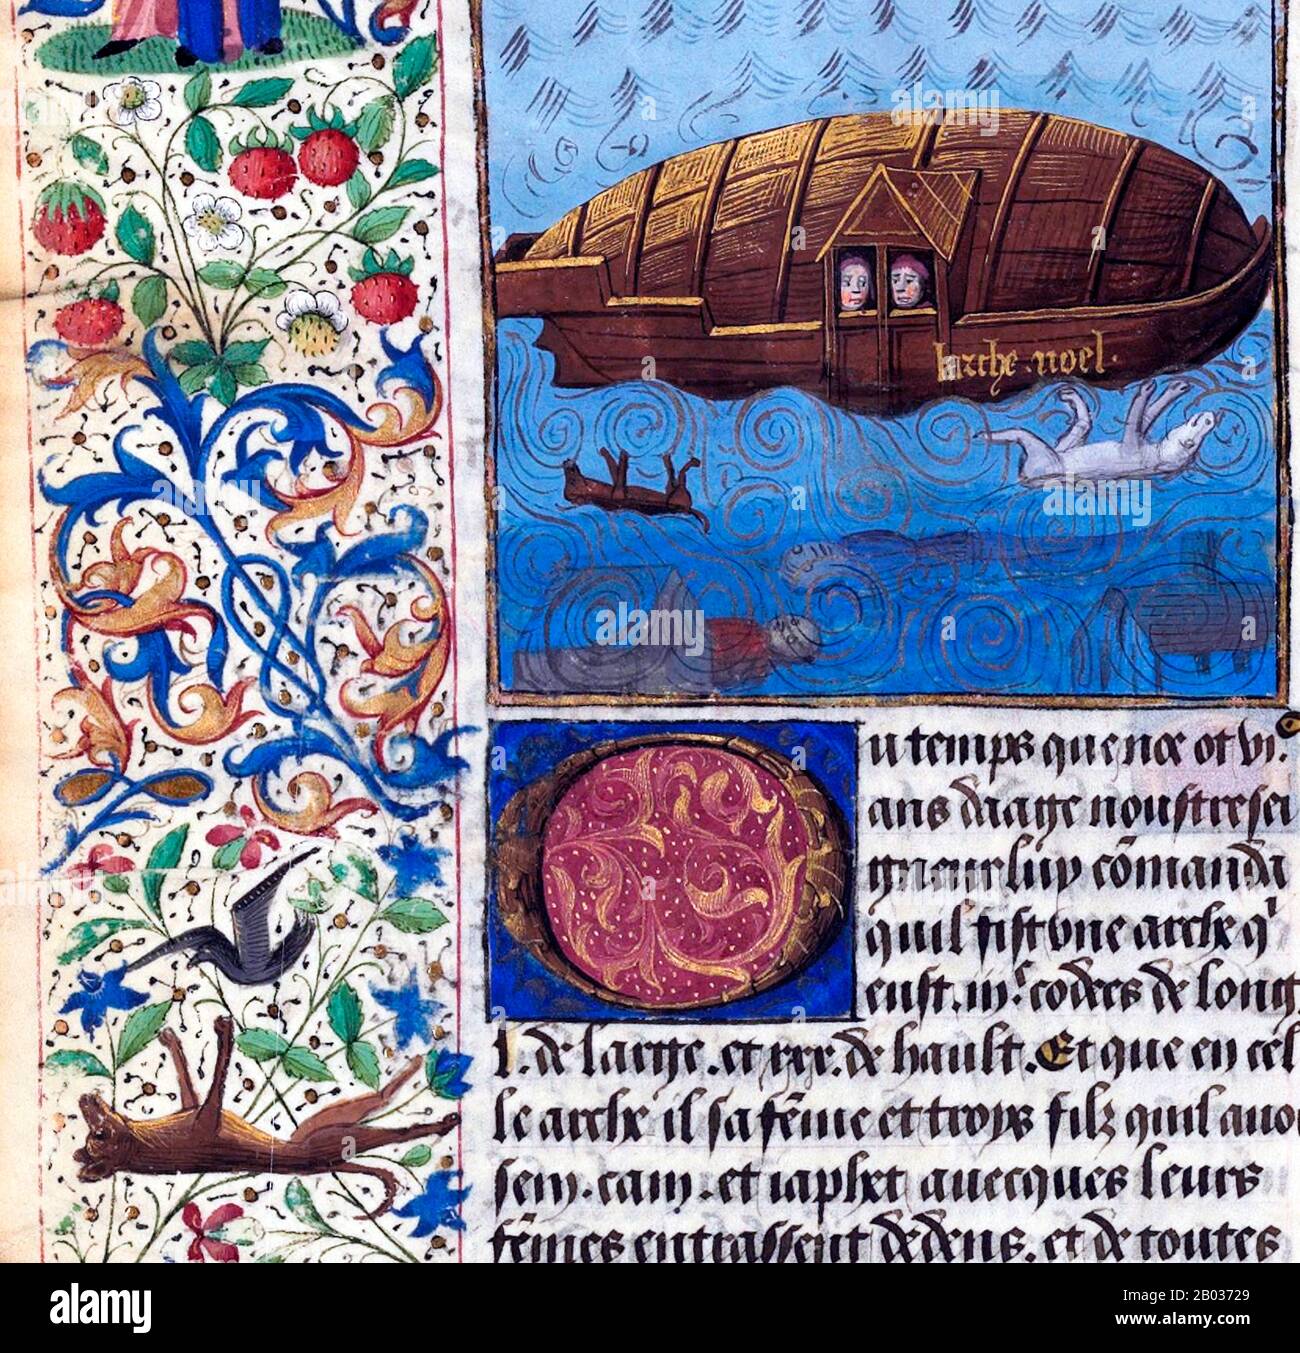 larche noel.
u temps que noe ot vi.
ans daage noustre sei
gneur luy cõmanda
quil fist vne arche q'
eust .iijᶜ. codees de long
l. de large . et xxx. de hault . Et que en cel
le arche il sa fẽme et troys filz quil auoi
sem . cam . et iaphet auecques leurs
fẽmes entrassent dedens . et de toutes
alamy
Image ID: 2B03729
www.alamy.com